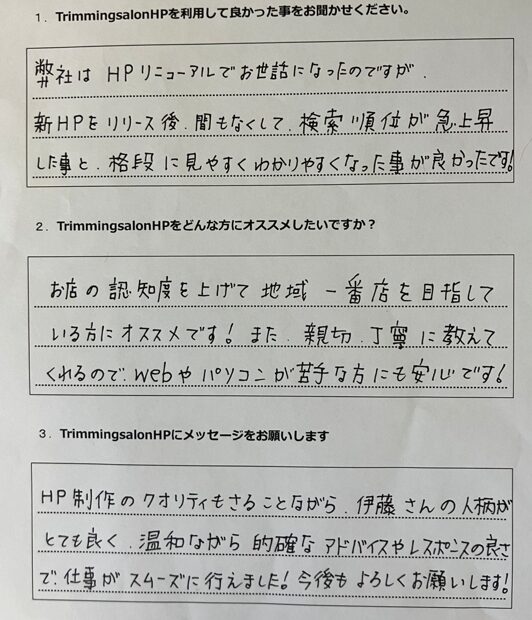 1. TrimmingsalonHPを利用して良かった事をお聞かせください。
弊社は HPリニューアルでお世話になったのですが、
新HPをリリース後、間もなくして、検索順位が急上昇
した事と、格段に見やすくわかりやすくなった事が良かったです!
2. TrimmingsalonHPをどんな方にオススメしたいですか?
お店の認知度を上げて地域一番店を目指して
いる方にオススメです! また、親切、丁寧に教えて
くれるので、webやパソコンが苦手な方にも安心です!
3. TrimmingsalonHPにメッセージをお願いします
HP制作のクオリティもさることながら、伊藤さんの人柄が
とても良く、温和ながら的確なアドバイスやレスポンスの良さ
で、仕事がスムーズに行えました! 今後もよろしくお願いします!